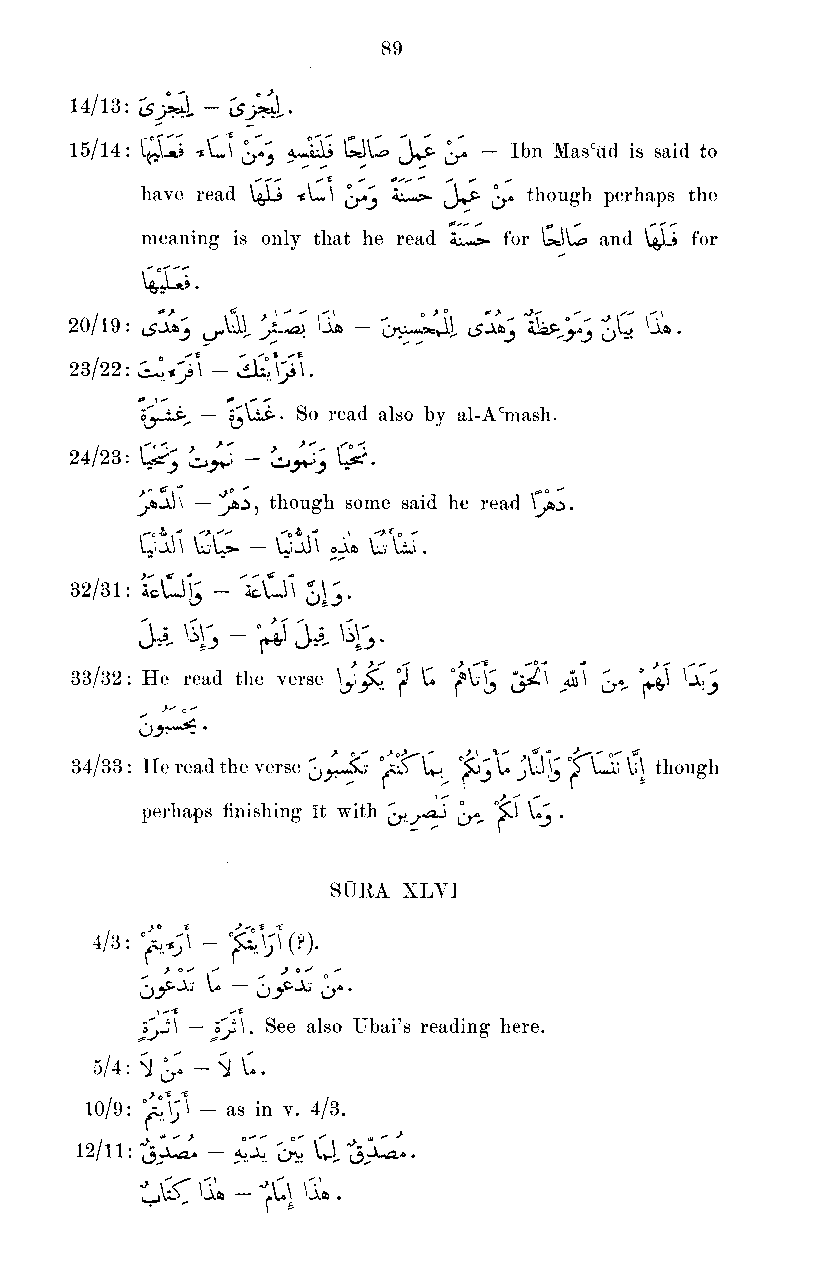 89
14/13: لِيَجْزِىَ — لِيُجْزِىَ.
15/14: مَنْ عَمِلَ صَالِحًا فَلِنَفْسِهِ وَمَنْ أَسَاءَ فَعَلَيْهَا — Ibn Masʿūd is said to
have read مَنْ عَمِلَ حَسَنَةً وَمَنْ أَسَاءَ فَلَهَا though perhaps the
meaning is only that he read حَسَنَةً for صَالِحًا and فَلَهَا for
فَعَلَيْهَا.
20/19: هٰذَا بَصَٰئِرُ لِلنَّاسِ وَهُدًى — هٰذَا بَيَانٌ وَمَوْعِظَةٌ وَهُدًى لِلْمُحْسِنِينَ.
23/22: أَفَرَءَيْتَ — أَفَرَأَيْتَكَ.
غِشَٰوَةً — غَشَاوَةً. So read also by al-Aʿmash.
24/23: نَمُوتُ وَنَحْيَا — نَحْيَا وَنَمُوتُ.
ٱلدَّهْرُ — دَهْرٌ, though some said he read دَهْرًا.
حَيَاتُنَا ٱلدُّنْيَا — نَشْأَتُنَا هٰذِهِ ٱلدُّنْيَا.
32/31: وَٱلسَّاعَةُ — وَإِنَّ ٱلسَّاعَةَ.
وَإِذَا قِيلَ — وَإِذَا قِيلَ لَهُمْ.
33/32: He read the verse وَبَدَا لَهُمْ مِنَ ٱللهِ ٱلْحَقُّ وَأَتَاهُمْ مَا لَمْ يَكُونُوا
يَحْتَسِبُونَ.
34/33: He read the verse إِنَّا نَنْسَاكُمْ وَٱلنَّارُ مَأْوٰىكُمْ بِمَا كُنْتُمْ تَكْسِبُونَ though
perhaps finishing it with وَمَا لَكُمْ مِنْ نَٰصِرِينَ.
SŪRA XLVI
4/3: أَرَءَيْتُمْ — أَرَأَيْتَكُمْ (?).
مَا تَدْعُونَ — مَنْ تَدْعُونَ.
أَثَٰرَةٍ — أَثَرَةٍ. See also Ubai's reading here.
5/4: مَنْ لَا — مَا لَا.
10/9: أَرَأَيْتُمْ — as in v. 4/3.
12/11: مُصَدِّقٌ — مُصَدِّقٌ لِمَا بَيْنَ يَدَيْهِ.
هٰذَا كِتَابٌ — هٰذَا إِمَامٌ.